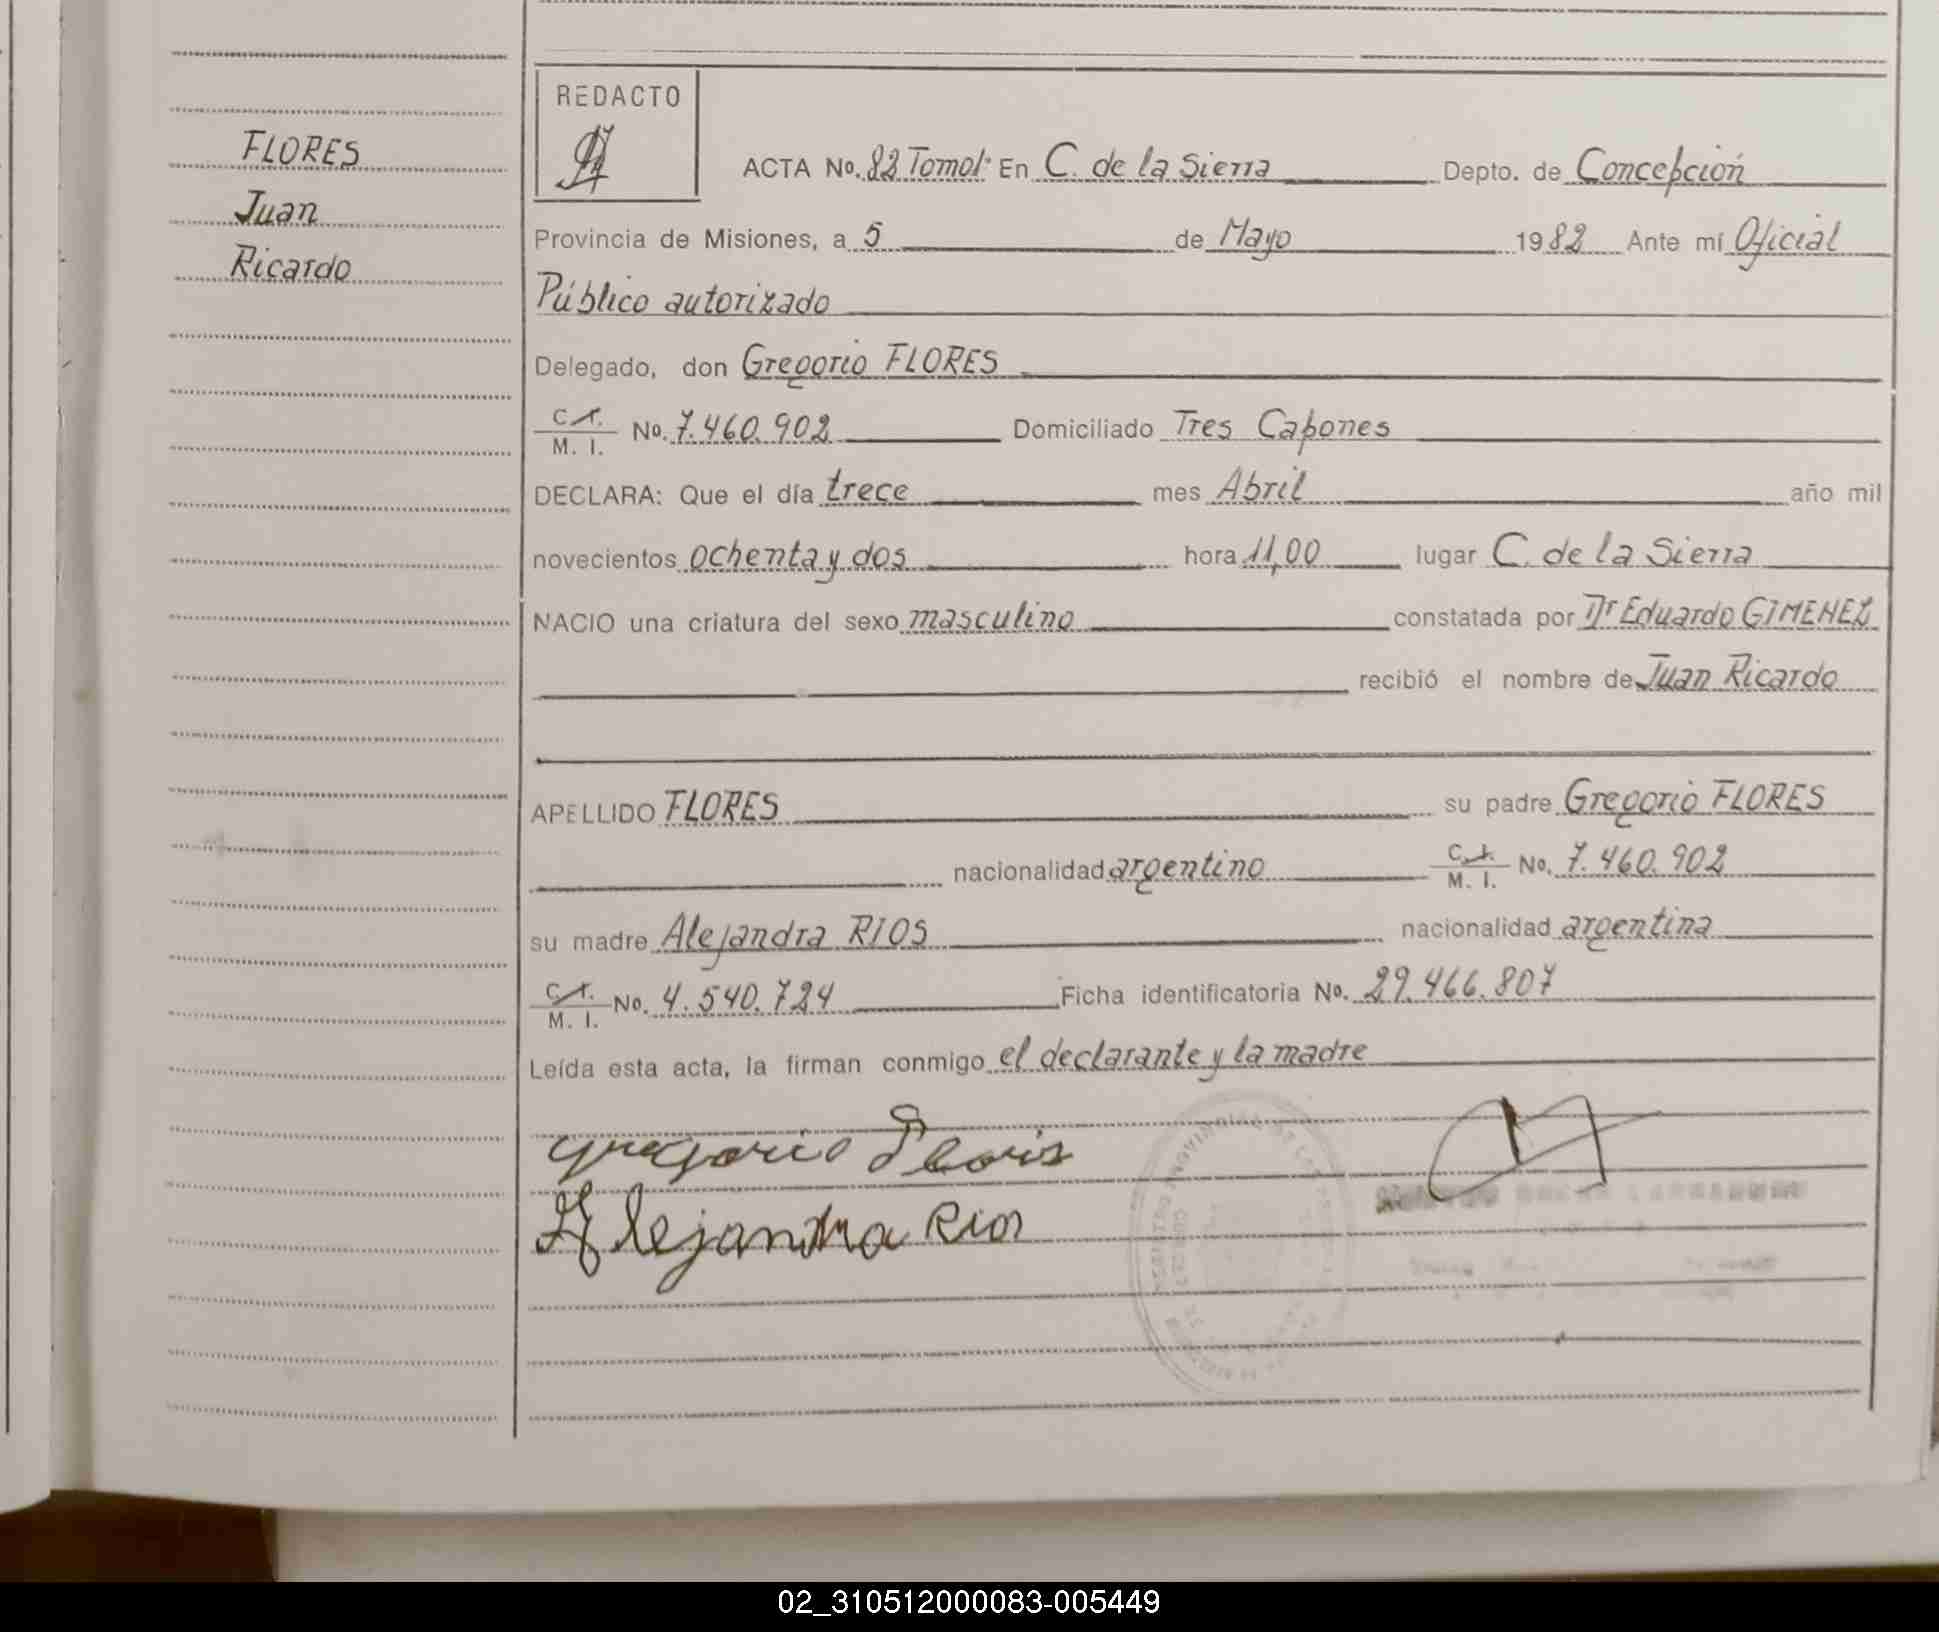 FLORES
Juan
Ricardo
REDACTO
ACTA No. 82 Tomo I: En C. de la Sierra Depto. de Concepción
Provincia de Misiones, a 5 de Mayo 1982 Ante mí Oficial
Público autorizado
Delegado, don Gregorio FLORES
C. I. / M. I. No. 7.460.902 Domiciliado Tres Capones
DECLARA: Que el día trece mes Abril año mil
novecientos ochenta y dos hora 11,00 lugar C. de la Sierra
NACIO una criatura del sexo masculino constatada por Dr Eduardo GIMENEZ
recibió el nombre de Juan Ricardo
APELLIDO FLORES su padre Gregorio FLORES
nacionalidad argentino C. I. / M. I. No. 7.460.902
su madre Alejandra RIOS nacionalidad argentina
C. I. / M. I. No. 4.540.724 Ficha identificatoria No. 29.466.807
Leída esta acta, la firman conmigo el declarante y la madre
gregorio Floris
Alejandra Rios
02_310512000083-005449